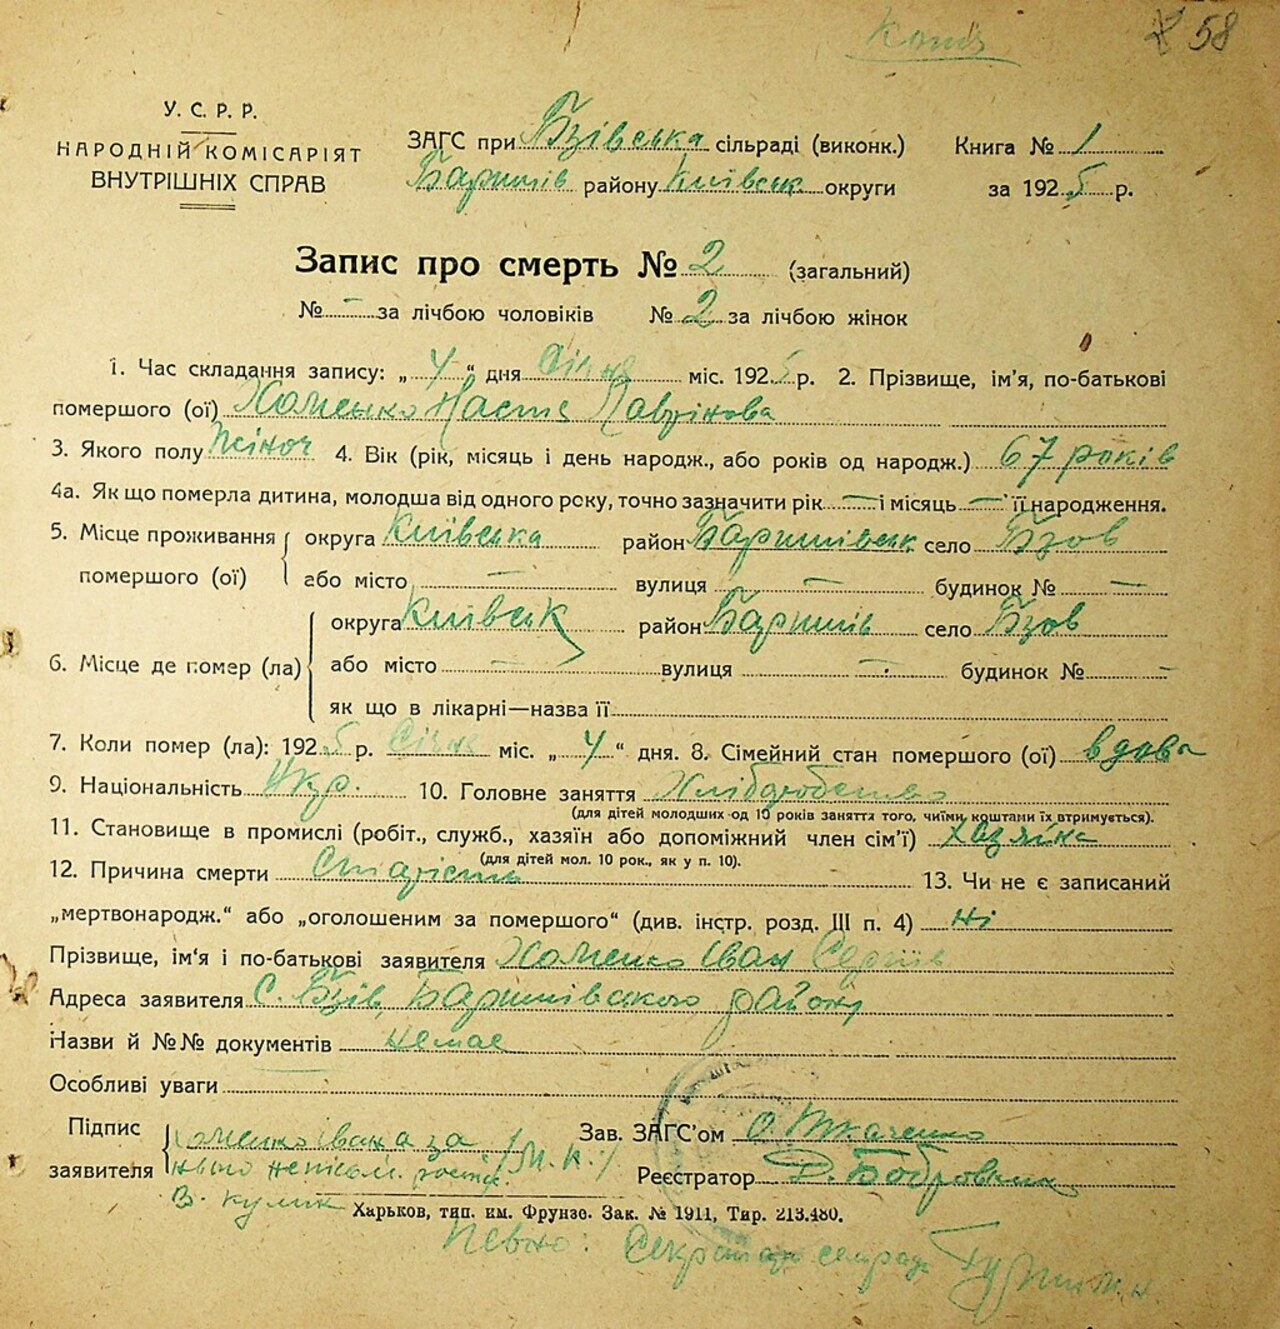 Копія
58
У. С. Р. Р.
НАРОДНІЙ КОМІСАРІЯТ
ВНУТРІШНІХ СПРАВ
ЗАГС при Бзівська сільраді (виконк.)
Баришів району Київськ округи
Книга № 1
за 1925 р.
Запис про смерть № 2 (загальний)
№ – за лічбою чоловіків № 2 за лічбою жінок
1. Час складання запису: „ 4 “ дня Січня міс. 1925 р. 2. Прізвище, ім'я, по-батькові
помершого (ої) Хоменко Настя Лаврінова
3. Якого полу жіноч 4. Вік (рік, місяць і день народж., або років од народж.) 67 років
4а. Як що померла дитина, молодша від одного року, точно зазначити рік — і місяць — її народження.
5. Місце проживання помершого (ої) округа Київська район Баришівськ село Бзов
або місто — вулиця — будинок № —
6. Місце де помер (ла) округа Київськ район Баришів село Бзов
або місто — вулиця — будинок № –
як що в лікарні—назва її
7. Коли помер (ла): 1925 р. Січня міс. „ 4 “ дня. 8. Сімейний стан помершого (ої) вдова
9. Національність Укр. 10. Головне заняття Хліборобство
(для дітей молодших од 10 років заняття того, чиїми коштами їх втримується).
11. Становище в промислі (робіт., служб., хазяїн або допоміжний член сім'ї) хазяйка
(для дітей мол. 10 рок., як у п. 10).
12. Причина смерти Старість 13. Чи не є записаний
„мертвонародж.“ або „оголошеним за помершого“ (див. інстр. розд. III п. 4) ні
Прізвище, ім'я і по-батькові заявителя Хоменко Іван Сергіїв
Адреса заявителя С. Бзів Баришівського району
Назви й №№ документів немає
Особливі уваги
Підпис заявителя Хоменко Івана за
нього непісьм. розпис. /М. К./
В. Кулик
Зав. ЗАГС'ом О. Ткаченко
Реєстратор Д. Бобровник
Харьков, тип. им. Фрунзе. Зак. № 1911, Тир. 213.480.
Певно: Секретар сельради